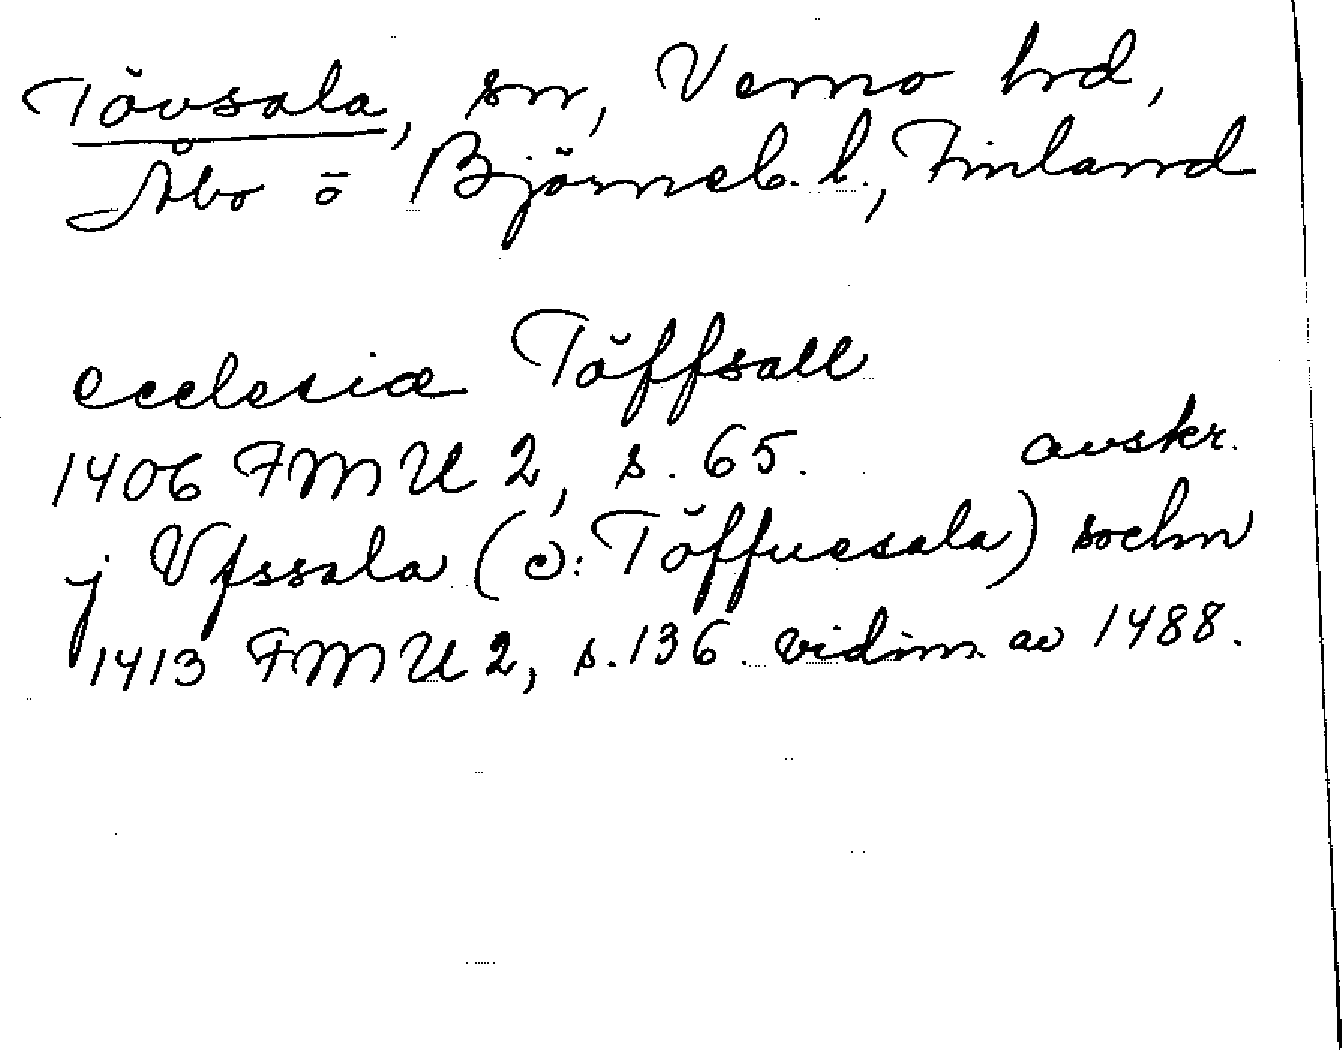 Tövsala, sn, Vemo hrd,
Åbo o Björneb. l., Finland
ecclesiæ Töffsall
1406 FMU 2, s. 65. avskr.
j Vfssala (ɔ: Töffuesala) sochn
1413 FMU 2, s. 136 vidim. av 1488.